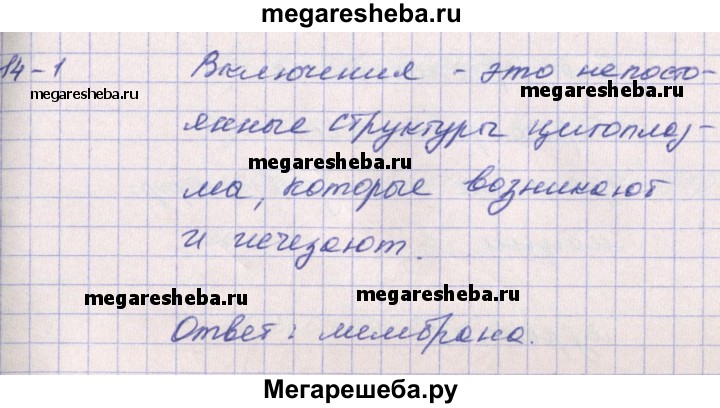 megaresheba.ru
14-1 Включения - это непосто-
megaresheba.ru megaresheba.ru
янные структуры цитоплаз-
megaresheba.ru
ма, которые возникают
и исчезают.
megaresheba.ru megaresheba.ru
Ответ: мембрана.
Мегарешеба.ру